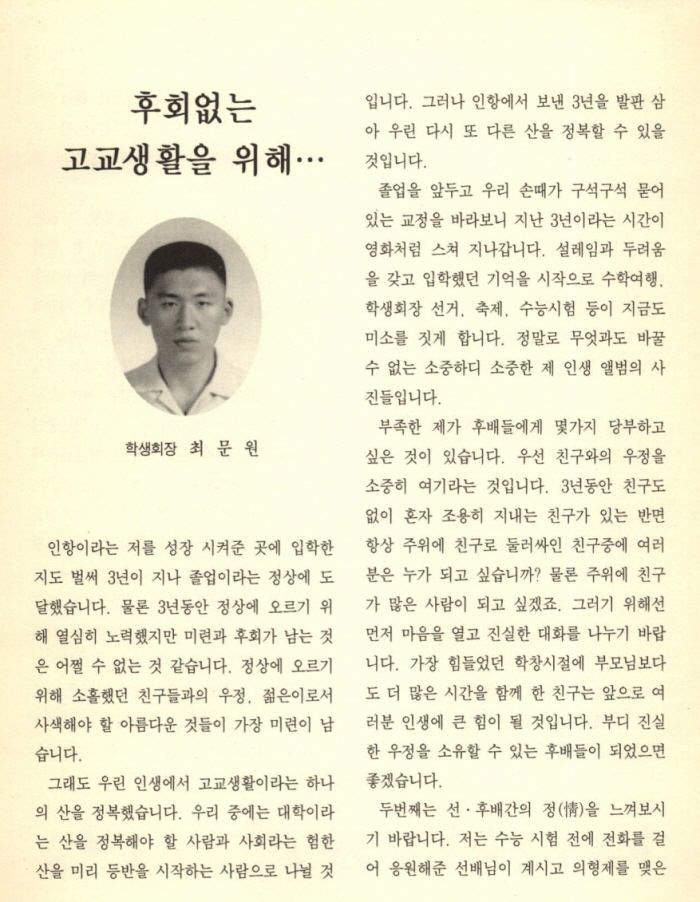 후회없는
고교생활을 위해…
학생회장 최 문 원
인항이라는 저를 성장 시켜준 곳에 입학한
지도 벌써 3년이 지나 졸업이라는 정상에 도
달했습니다. 물론 3년동안 정상에 오르기 위
해 열심히 노력했지만 미련과 후회가 남는 것
은 어쩔 수 없는 것 같습니다. 정상에 오르기
위해 소홀했던 친구들과의 우정, 젊은이로서
사색해야 할 아름다운 것들이 가장 미련이 남
습니다.
그래도 우린 인생에서 고교생활이라는 하나
의 산을 정복했습니다. 우리 중에는 대학이라
는 산을 정복해야 할 사람과 사회라는 험한
산을 미리 등반을 시작하는 사람으로 나뉠 것
입니다. 그러나 인항에서 보낸 3년을 발판 삼
아 우린 다시 또 다른 산을 정복할 수 있을
것입니다.
졸업을 앞두고 우리 손때가 구석구석 묻어
있는 교정을 바라보니 지난 3년이라는 시간이
영화처럼 스쳐 지나갑니다. 설레임과 두려움
을 갖고 입학했던 기억을 시작으로 수학여행,
학생회장 선거, 축제, 수능시험 등이 지금도
미소를 짓게 합니다. 정말로 무엇과도 바꿀
수 없는 소중하디 소중한 제 인생 앨범의 사
진들입니다.
부족한 제가 후배들에게 몇가지 당부하고
싶은 것이 있습니다. 우선 친구와의 우정을
소중히 여기라는 것입니다. 3년동안 친구도
없이 혼자 조용히 지내는 친구가 있는 반면
항상 주위에 친구로 둘러싸인 친구중에 여러
분은 누가 되고 싶습니까? 물론 주위에 친구
가 많은 사람이 되고 싶겠죠. 그러기 위해선
먼저 마음을 열고 진실한 대화를 나누기 바랍
니다. 가장 힘들었던 학창시절에 부모님보다
도 더 많은 시간을 함께 한 친구는 앞으로 여
러분 인생에 큰 힘이 될 것입니다. 부디 진실
한 우정을 소유할 수 있는 후배들이 되었으면
좋겠습니다.
두번째는 선·후배간의 정(情)을 느껴보시
기 바랍니다. 저는 수능 시험 전에 전화를 걸
어 응원해준 선배님이 계시고 의형제를 맺은